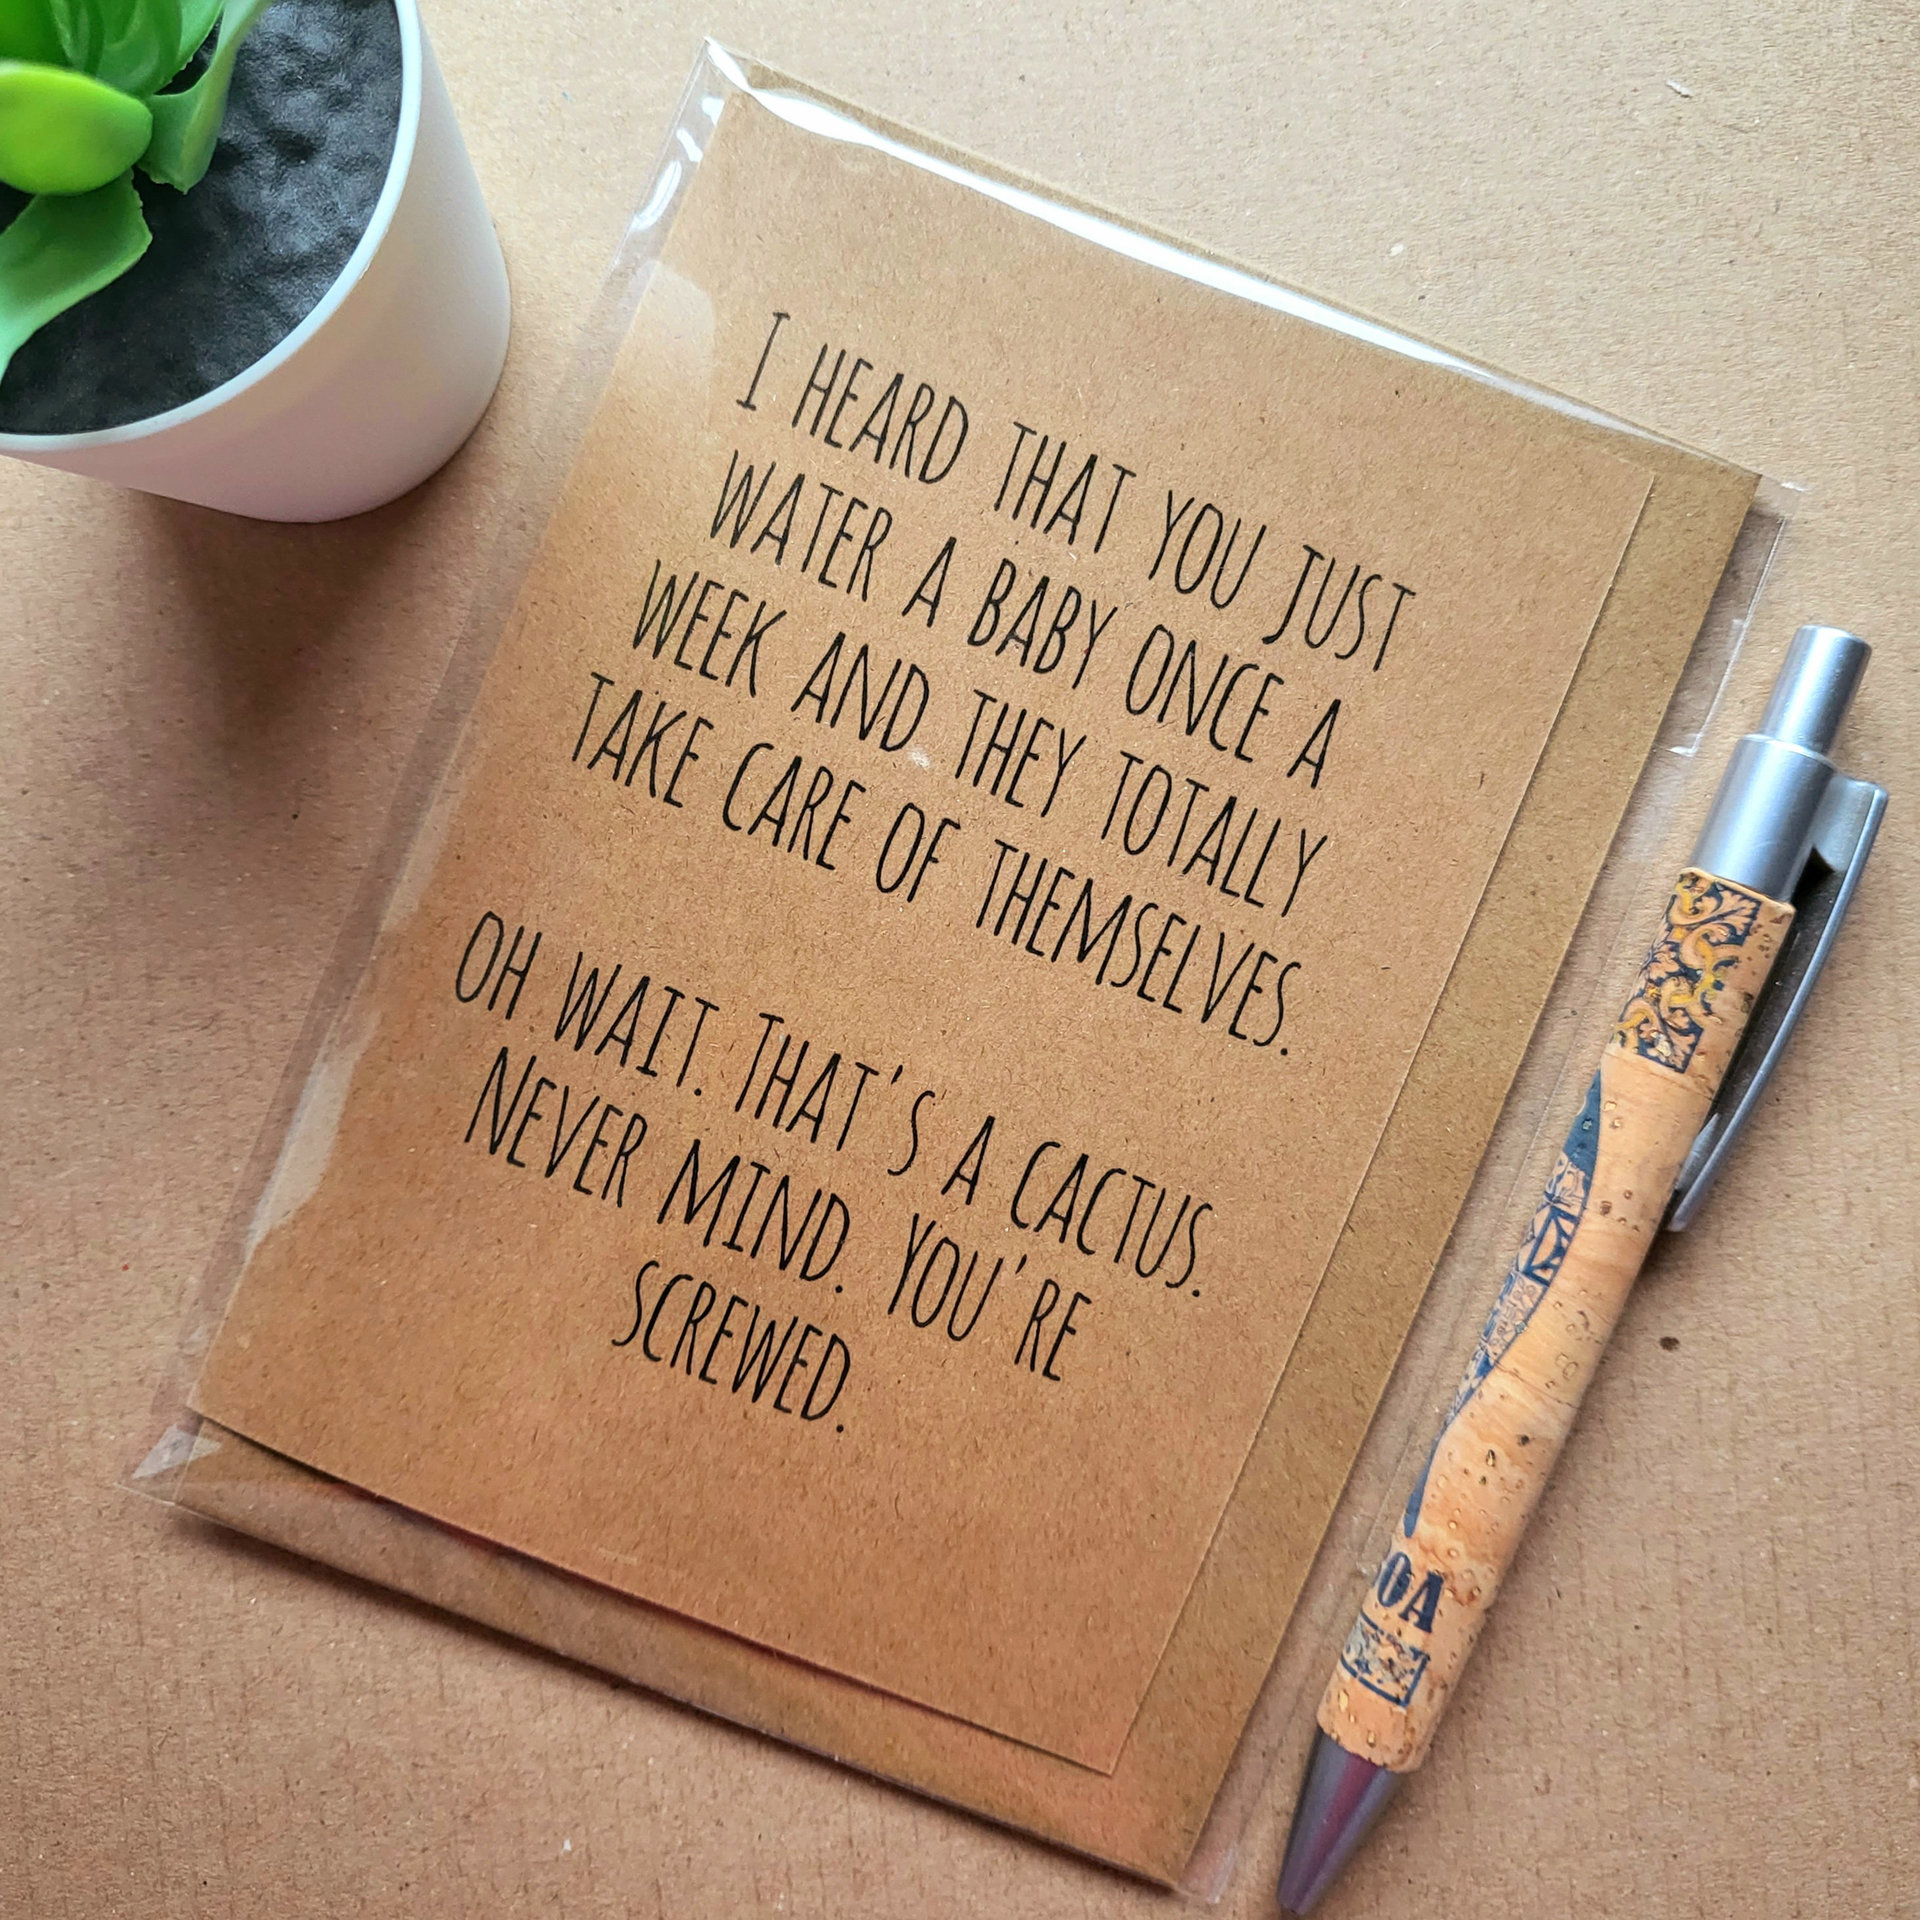 I HEARD THAT YOU JUST
WATER A BABY ONCE A
WEEK AND THEY TOTALLY
TAKE CARE OF THEMSELVES.
OH WAIT. THAT'S A CACTUS.
NEVER MIND. YOU'RE
SCREWED.
OA